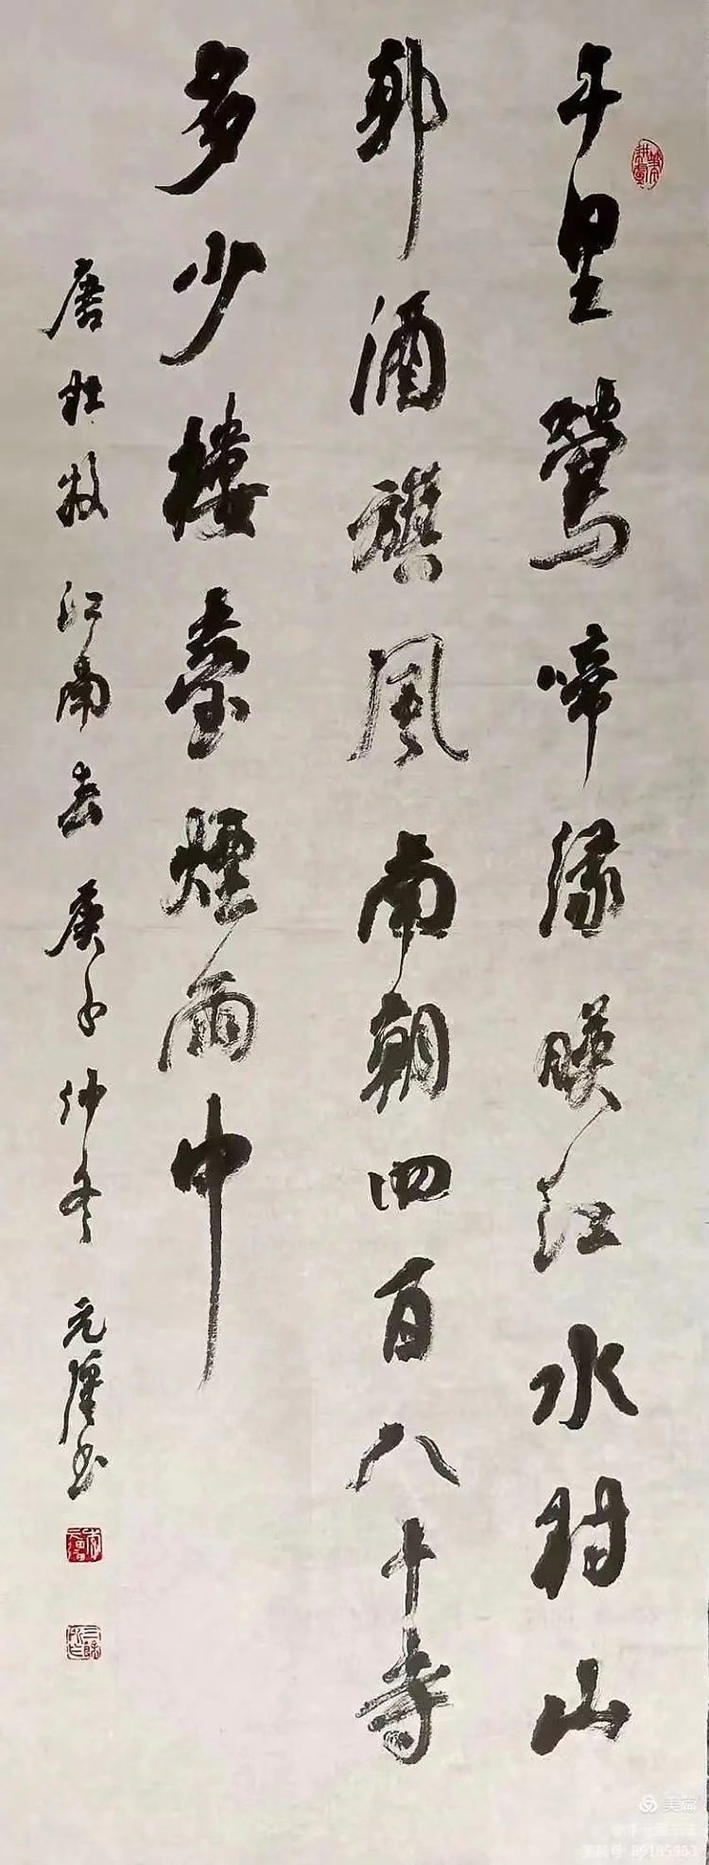 千里鶯啼緑暎紅水村山
郭酒旗風南朝四百八十寺
多少樓臺煙雨中
唐杜牧江南春庚子仲冬元书
美篇